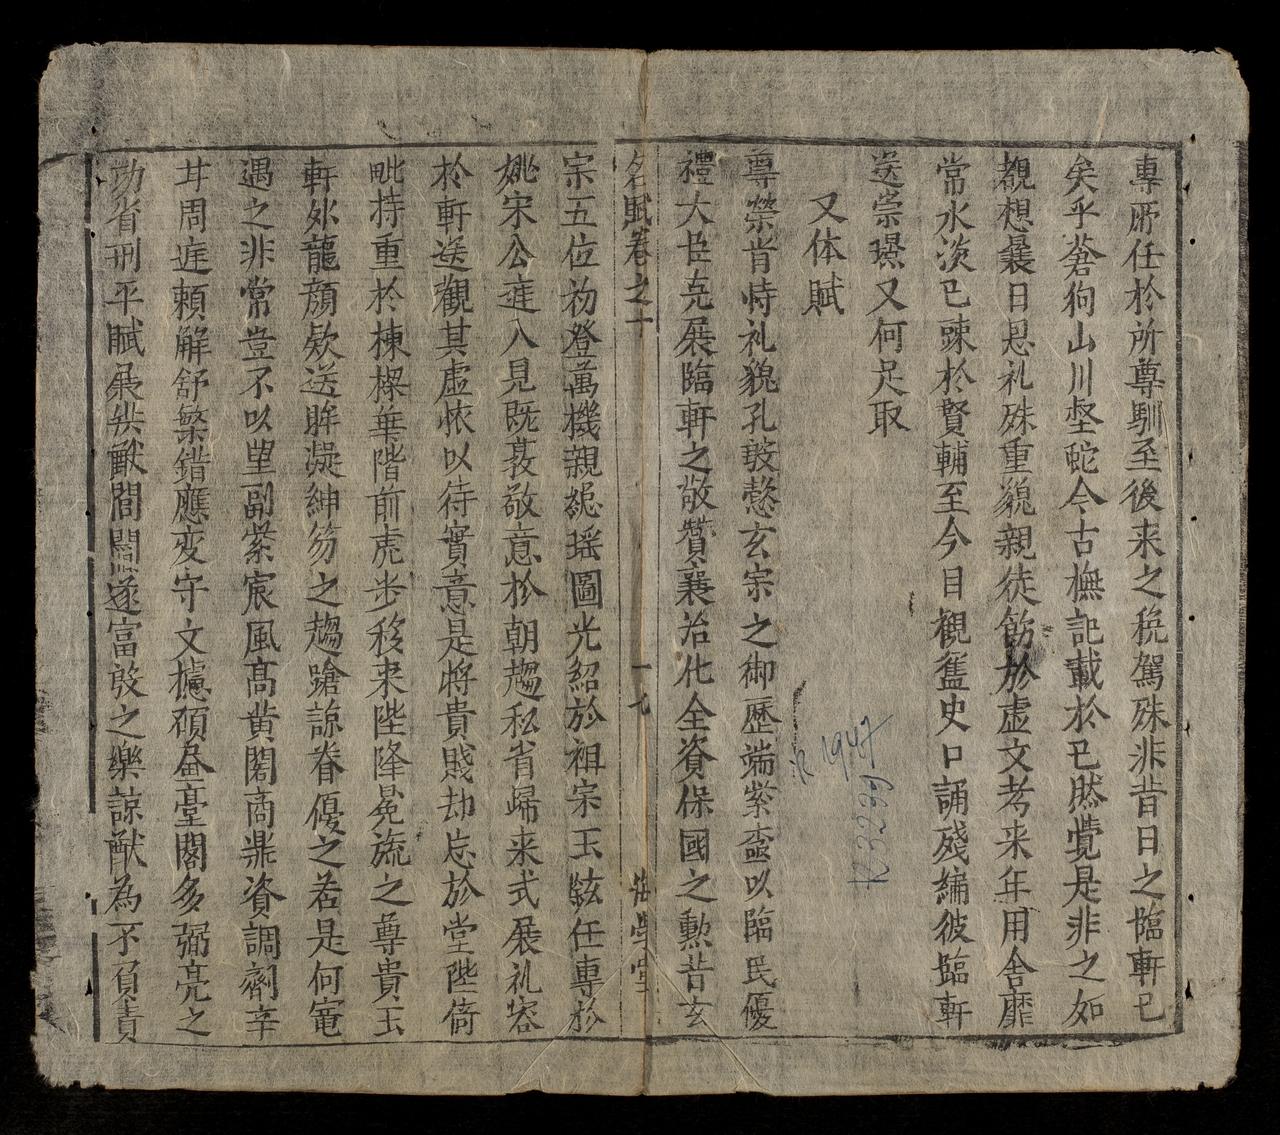 專席任於所尊馴至後来之稅駕殊非昔日之臨軒已
矣乎蒼狗山川壑蛇今古撫記載於已然覺是非之如
覩想曩日恩礼殊重貌親徒飭於虚文考来年用舍靡
常水淡已踈於賢輔至今目觀舊史口誦殘編彼臨軒
送崇璟又何足取
又体賦
尊榮肯恃礼貌孔設慇玄宗之御歷端紫㿻以臨民優
禮大臣克展臨軒之敬贊襄治化全資保國之勲昔玄
名賦卷之十 一九 學堂
宗五位初登萬機親緫瑶圖光紹於祖宗玉鉉任專於
姚宋公進入見既敦敬意於朝趨私省歸来式展礼容
於軒送觀其虚懷以待實意是將貴賤却忘於堂陛倚
毗持重於棟樑華階前虎步移来陛降冕旒之尊貴玉
軒外龍顔欵送眸凝紳笏之趨蹌諒眷優之若是何寵
遇之非常豈不以望副紫宸風高黄閣商鼎資調劑辛
甘周庭賴解舒繁錯應変守文攄碩畫臺閣多弼亮之
功省刑平賦展㳟猷閭閻遂富殷之樂諒猷為不負責
R.3239
1947